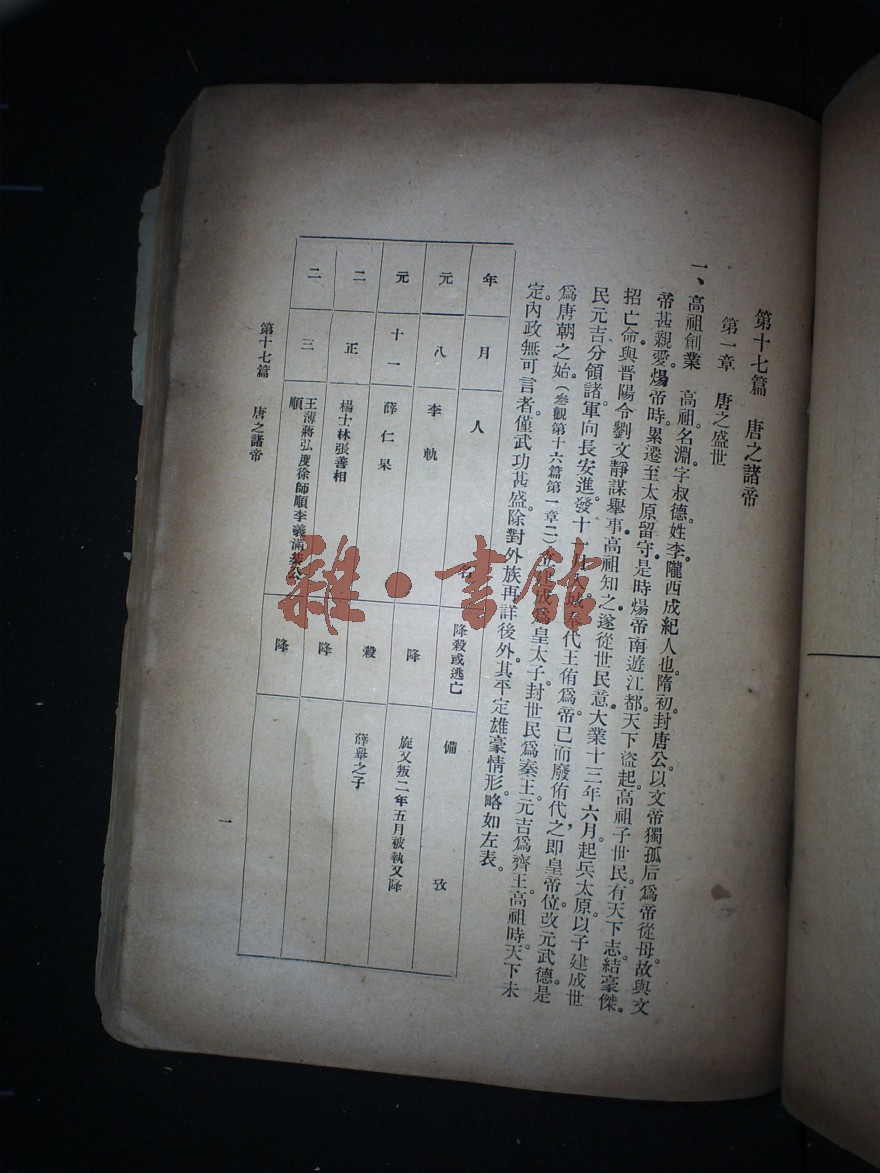 第十七篇　唐之諸帝
第一章　唐之盛世
一、高祖創業　高祖。名淵。字叔德。姓李。隴西成紀人也。隋初封唐公。以文帝獨孤后爲帝從母。故與文
帝甚親愛。煬帝時。累遷至太原留守。是時煬帝南遊江都。天下盜起。高祖子世民有天下志。結豪傑。
招亡命。與晋陽令劉文靜謀舉事。高祖知之。遂從世民意。大業十三年六月。起兵太原。以子建成世
民元吉分領諸軍。向長安進發。十一月入城。奉代王侑爲帝。已而廢侑代之。即皇帝位。改元武德。是
爲唐朝之始。（參觀第十六篇第一章二）立建成爲皇太子。封世民爲秦王。元吉爲齊王。高祖時。天下未
定。內政無可言者。僅武功甚盛。除對外族再詳後外。其平定雄豪情形。略如左表。
年　月　人　名　降殺或逃亡　備　攷
元　八　李　軌　降　旋又叛二年五月被執又降
元　十一　薛仁杲　殺　薛舉之子
二　正　楊士林張善相　降
二　三　王薄蔣弘度徐師順李義滿綦公
順　降
第十七篇　唐之諸帝
一
雜·書館